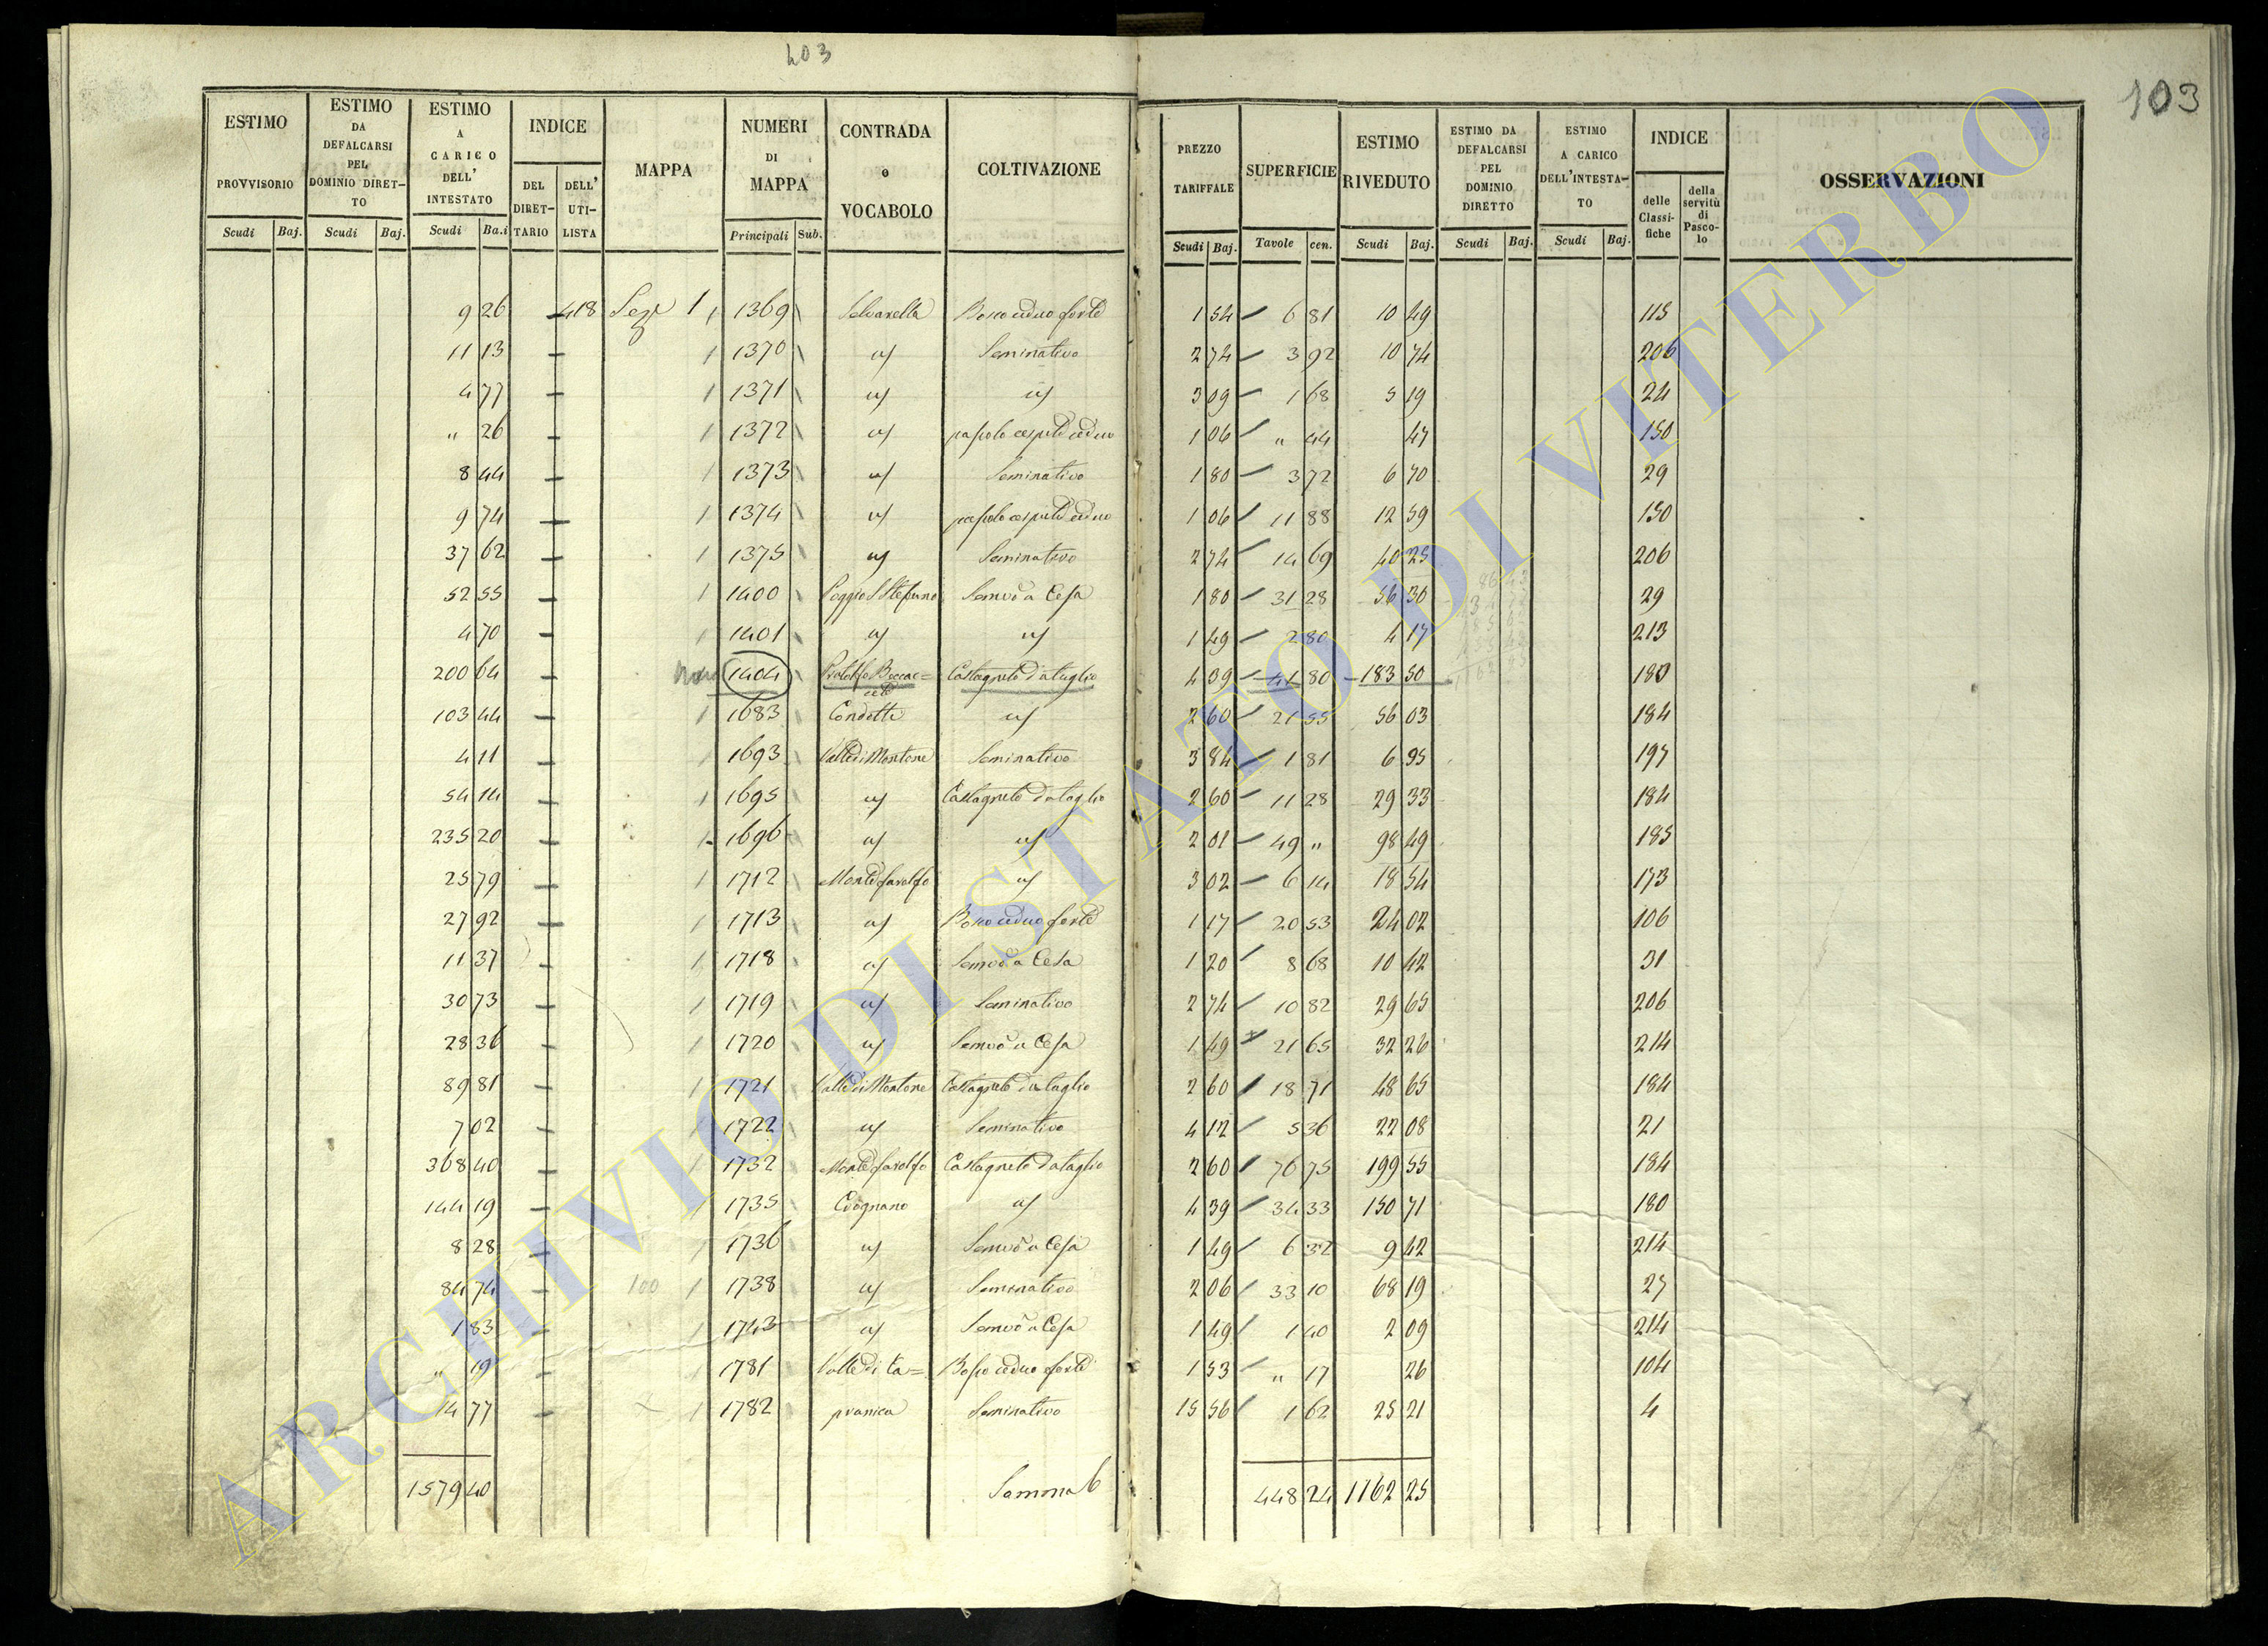 403
103
ESTIMO PROVVISORIO
ESTIMO DA DEFALCARSI PEL DOMINIO DIRET-TO
ESTIMO A CARICO DELL' INTESTATO
INDICE
DEL DIRET-TARIO
DELL' UTI-LISTA
MAPPA
NUMERI DI MAPPA
CONTRADA o VOCABOLO
COLTIVAZIONE
PREZZO TARIFFALE
SUPERFICIE
ESTIMO RIVEDUTO
ESTIMO DA DEFALCARSI PEL DOMINIO DIRETTO
ESTIMO A CARICO DELL'INTESTA-TO
INDICE
delle Classi-fiche
della servitù di Pasco-lo
OSSERVAZIONI
Scudi Baj. Scudi Baj. Scudi Ba.i Principali Sub. Scudi Baj. Tavole cen. Scudi Baj. Scudi Baj. Scudi Baj.
9 26 — 418 Sez 1 1369 Selvarella Bosco ceduo forte 1 54 6 81 10 49 115
11 13 — 1 1370 id Seminativo 2 74 3 92 10 74 206
4 77 — 1 1371 id id 3 09 1 68 5 19 24
" 26 — 1 1372 id pascolo cespud ceduo 1 06 " 44 47 150
8 44 — 1 1373 id Seminativo 1 80 3 72 6 70 29
9 74 — 1 1374 id pascolo cespud ceduo 1 06 11 88 12 59 150
37 62 — 1 1375 id Seminativo 2 74 14 69 40 25 206
52 55 — 1 1400 Poggio S Stefano Semvo a Cesa 1 80 31 28 56 30 29
4 70 — 1 1401 id id 1 49 2 80 4 17 213
200 64 1404 Castagneto da taglio 4 39 41 80 183 50 180
103 44 — 1 1683 Condotti id 2 60 21 55 56 03 184
4 11 — 1 1693 Valle di Montone Seminativo 3 84 1 81 6 95 197
54 14 — 1 1695 id Castagneto da taglio 2 60 11 28 29 33 184
235 20 — 1 1696 id id 2 01 49 " 98 49 185
25 79 — 1 1712 Monte farolfo id 3 02 6 14 18 54 173
27 92 — 1 1713 id Bosco ceduo forte 1 17 20 53 24 02 106
11 37 — 1 1718 id Semvo a Cesa 1 20 8 68 10 42 31
30 73 — 1 1719 id Seminativo 2 74 10 82 29 65 206
28 36 — 1 1720 id Semvo a Cesa 1 49 21 65 32 26 214
89 81 — 1 1721 Valle di Montone Castagneto da taglio 2 60 18 71 48 65 184
7 02 — 1 1722 id Seminativo 4 12 5 36 22 08 21
368 40 — 1 1732 Monte farolfo Castagneto da taglio 2 60 76 75 199 55 184
144 19 — 1 1735 Cognano id 4 39 34 33 150 71 180
8 28 — 1736 id Semvo a Cesa 1 49 6 32 9 42 214
84 74 — 100 1 1738 id Seminativo 2 06 33 10 68 19 27
1 83 — 1 1743 id Semvo a Cesa 1 49 1 40 2 09 214
" 19 — 1 1781 Valle di Ca= Bosco ceduo forte 1 53 " 17 26 104
14 77 — 1 1782 pranica Seminativo 15 56 1 62 25 21 4
1579 40 Somma 448 24 1162 25
ARCHIVIO DI STATO DI VITERBO